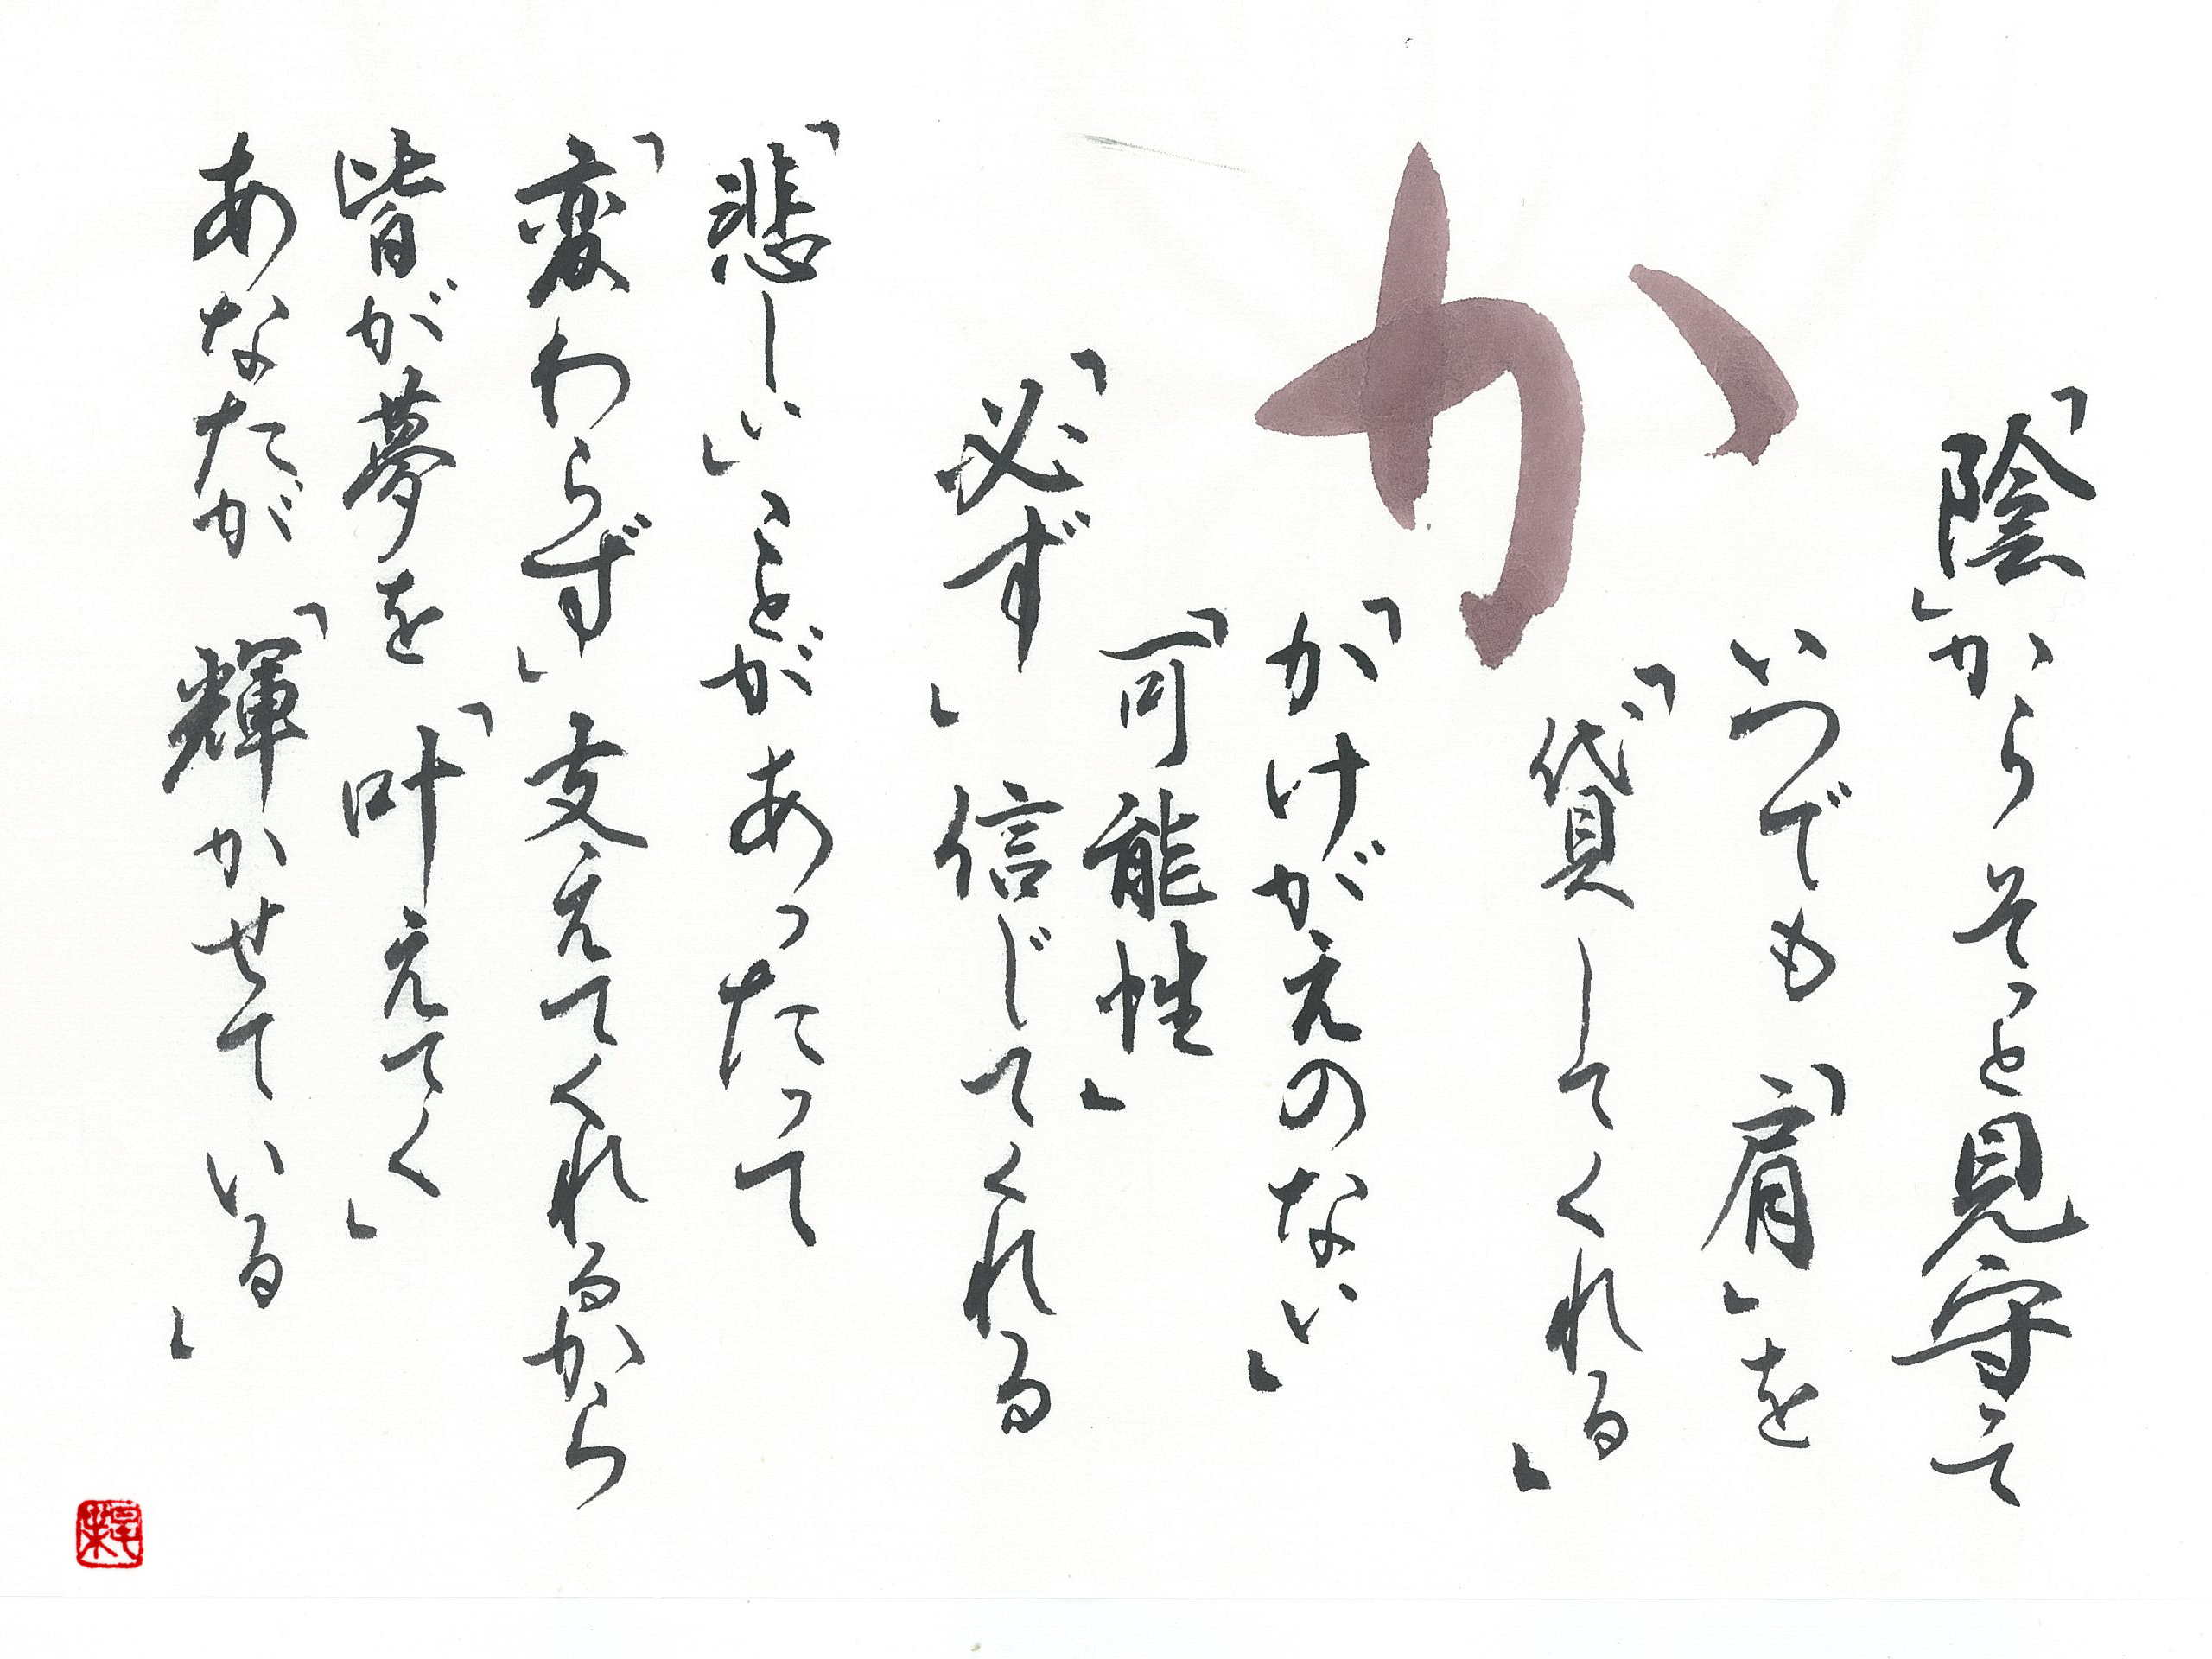 か
「陰」からそっと見守って
いつでも「肩」を
「貸してくれる」
「かけがえのない」
「可能性」
「必ず」信じてくれる
「悲しい」ことがあったって
「変わらず」支えてくれるから
皆が夢を「叶えてく」
あなたが「輝かせている」